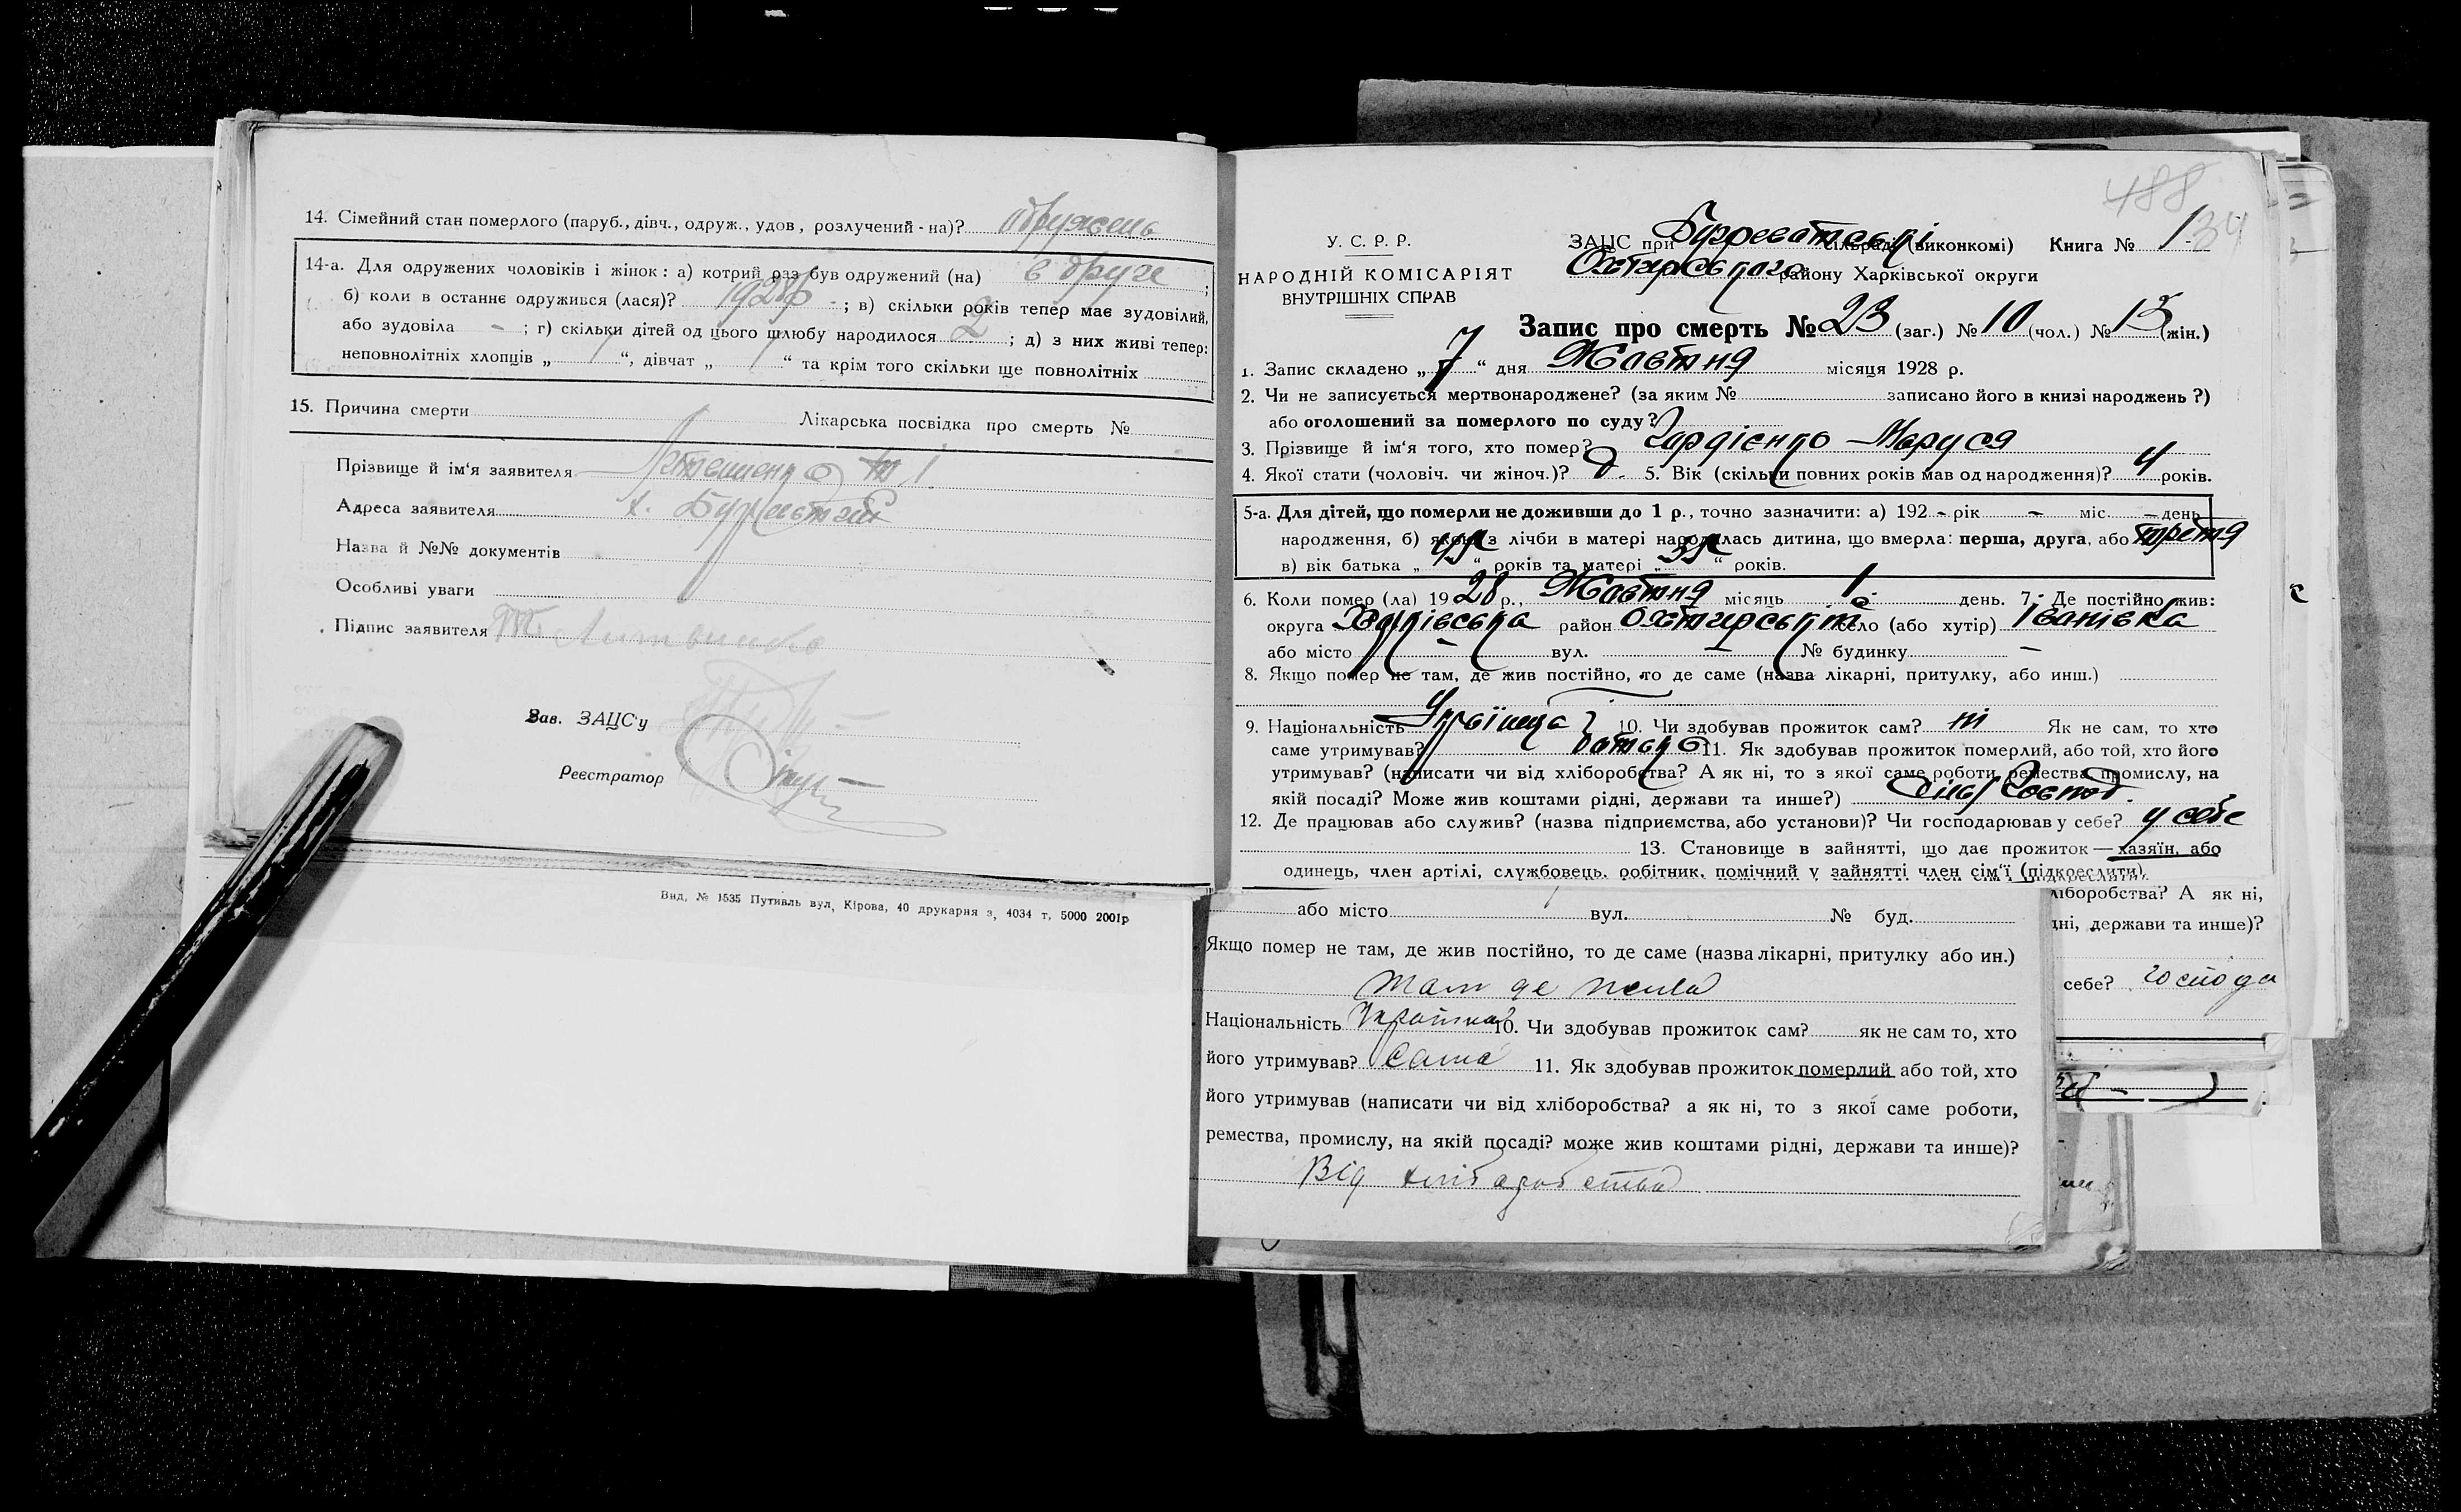 14. Сімейний стан померлого (паруб., дівч., одруж., удов, розлучений - на)? одружень
14-а. Для одружених чоловіків і жінок: а) котрий раз був одружений (на) в друге ;
б) коли в останнє одружився (лася)? 1926 - ; в) скільки років тепер має зудовілий,
або зудовіла - ; г) скільки дітей од цього шлюбу народилося 2 ; д) з них живі тепер:
неповнолітніх хлопців „ 1 “, дівчат „ 1 “ та крім того скільки ще повнолітніх
15. Причина смерти Лікарська посвідка про смерть №
Прізвище й ім‘я заявителя
Адреса заявителя х.
Назва й №№ документів
Особливі уваги
Підпис заявителя
Зав. ЗАЦС‘у
Реєстратор
Вид. № 1535 Путивль вул. Кірова, 40 друкарня з. 4034 т. 5000 2001р
488
134
У. С. Р. Р.
НАРОДНІЙ КОМІСАРІЯТ
ВНУТРІШНІХ СПРАВ
ЗАЦС при сільраді (виконкомі) Книга № 1
Охтирського району Харківської округи
Запис про смерть № 23 (заг.) № 10 (чол.) № 13 (жін.)
1. Запис складено „ 7 “ дня Жовтня місяця 1928 р.
2. Чи не записується мертвонароджене? (за яким № записано його в книзі народжень ?)
або оголошений за померлого по суду?
3. Прізвище й ім‘я того, хто помер? Гордієнко Маруся
4. Якої стати (чоловіч. чи жіноч.)? 5. Вік (скільки повних років мав од народження)? 4 років.
5-а. Для дітей, що померли не доживши до 1 р., точно зазначити: а) 192 - рік - міс. - день
народження, б) якою з лічби в матері народилась дитина, що вмерла: перша, друга, або третя
в) вік батька „ “ років та матері „ “ років.
6. Коли помер (ла) 1928 р., Жовтня місяць 1 день. 7. Де постійно жив:
округа Харківська район Охтирський село (або хутір) Іванівка
або місто - вул. - № будинку -
8. Якщо помер не там, де жив постійно, то де саме (назва лікарні, притулку, або инш.)
9. Національність Українка 10. Чи здобував прожиток сам? ні Як не сам, то хто
саме утримував? батько 11. Як здобував прожиток померлий, або той, хто його
утримував? (написати чи від хліборобства? А як ні, то з якої саме роботи, ремества, промислу, на
якій посаді? Може жив коштами рідні, держави та инше?) Сільгоспод.
12. Де працював або служив? (назва підприємства, або установи)? Чи господарював у себе? у себе
13. Становище в зайнятті, що дає прожиток — хазяїн, або
одинець, член артілі, службовець, робітник, помічний у зайнятті член сім‘ї (підкреслити).
або місто вул. № буд.
Якщо помер не там, де жив постійно, то де саме (назва лікарні, притулку або ин.)
там де жила
Національність Українка 10. Чи здобував прожиток сам? як не сам то, хто
його утримував? сама 11. Як здобував прожиток померлий або той, хто
його утримував (написати чи від хліборобства? а як ні, то з якої саме роботи,
ремества, промислу, на якій посаді? може жив коштами рідні, держави та инше)?
Від хліборобства
ліборобства? А як ні,
дні, держави та инше)?
себе? господа